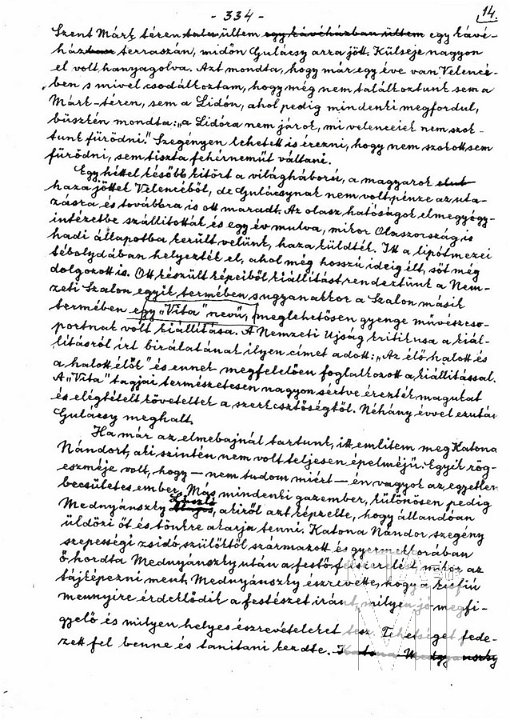 - 334 -
14.
Szent Márk téren ültem egy kávéházban ültem egy kávé-
ház terraszán, midőn Gulácsy arra jött. Külseje nagyon
el volt hanyagolva. Azt mondta, hogy már egy éve van Velencé-
ben s mivel csodálkoztam, hogy még nem találkoztunk sem a
Márk-téren, sem a Lidón, ahol pedig mindenki megfordul,
büszkén mondta: „a Lidóra nem járok, mi velenceiek nem szok-
tunk fürödni." Szegényen lehetett is érezni, hogy nem szokott sem
fürödni, sem tiszta fehérneműt váltani.
Egy héttel később kitört a világháború, a magyarok
haza jöttek Velencéből, de Gulácsynak nem volt pénze az uta-
zásra és továbbra is ott maradt. Az olasz hatóságok elmegyógy-
intézetbe szállították és egy év mulva, mikor Olaszország is
hadi állapotba került velünk, haza küldték. Itt a lipótmezei
tébolydában helyezték el, ahol még hosszú ideig élt, sőt még
dolgozott is. Ott készült képeiből kiállítást rendeztünk a Nem-
zeti Szalon egyik termében s ugyanakkor a Szalon másik
termében egy „Vita" nevű, meglehetősen gyenge művészcso-
portnak volt kiállítása. A Nemzeti Ujság kritikusa a kiál-
lításról írt birálatának ilyen címet adott: „Az élő halott és
a halott élők" és ennek megfelelően foglalkozott a kiállítással.
A „Vita" tagjai természetesen nagyon sértve érezték magukat
és elégtételt követeltek a szerkesztőségtől. Néhány évvel ezután
Gulácsy meghalt.
Ha már az elmebajnál tartunk, itt említem meg Katona
Nándort, aki szintén nem volt teljesen épelméjű. Egyik rög-
eszméje volt, hogy — nem tudom miért — én vagyok az egyetlen
becsületes ember. Más mindenki gazember, különösen pedig
Mednyánszky László, akiről azt képzelte, hogy állandóan
üldözi őt és tönkre akarja tenni. Katona Nándor szegény
szepességi zsidó szülőktől származott és gyermekkorában
ő hordta Mednyánszky után a festőfelszerelést, mikor az
tájképezni ment. Mednyánszky észrevette, hogy a kisfiú
mennyire érdeklődik a festészet iránt, milyen jó megfi-
gyelő és milyen helyes észrevételeket tesz. Tehetséget fede-
zett fel benne és tanítani kezdte. Katona Mednyánszky